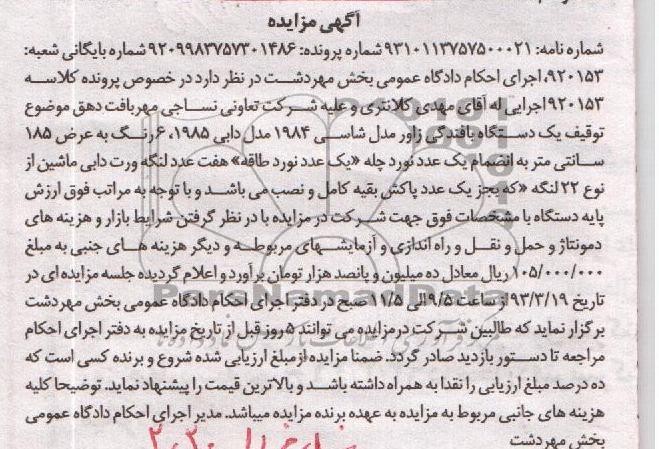 آگهی مزایده
شماره نامه: ۹۳۱۰۱۱۳۷۵۷۵۰۰۰۲۱ شماره پرونده: ۹۲۰۹۹۸۳۷۵۷۳۰۱۴۸۶ شماره بایگانی شعبه:
۹۲۰۱۵۳، اجرای احکام دادگاه عمومی بخش مهردشت در نظر دارد در خصوص پرونده کلاسه
۹۲۰۱۵۳ اجرایی له آقای مهدی کلانتری و علیه شرکت تعاونی نساجی مهربافت دهق موضوع
توقیف یک دستگاه بافندگی زاور مدل شاسی ۱۹۸۴ مدل دابی ۱۹۸۵، ۶ رنگ به عرض ۱۸۵
سانتی متر به انضمام یک عدد نورد چله «یک عدد نورد طاقه» هفت عدد لنگه ورت دابی ماشین از
نوع ۲۲ لنگه «که بجز یک عدد پاکش بقیه کامل و نصب می باشد و با توجه به مراتب فوق ارزش
پایه دستگاه با مشخصات فوق جهت شرکت در مزایده با در نظر گرفتن شرایط بازار و هزینه های
دمونتاژ و حمل و نقل و راه اندازی و آزمایشهای مربوطه و دیگر هزینه های جنبی به مبلغ
۱۰۵/۰۰۰/۰۰۰ ریال معادل ده میلیون و پانصد هزار تومان برآورد و اعلام گردیده جلسه مزایده ای در
تاریخ ۹۳/۳/۱۹ از ساعت ۹/۵ الی ۱۱/۵ صبح در دفتر اجرای احکام دادگاه عمومی بخش مهردشت
برگزار نماید که طالبین شرکت در مزایده می توانند ۵ روز قبل از تاریخ مزایده به دفتر اجرای احکام
مراجعه تا دستور بازدید صادر گردد. ضمنا مزایده از مبلغ ارزیابی شده شروع و برنده کسی است که
ده درصد مبلغ ارزیابی را نقدا به همراه داشته باشد و بالاترین قیمت را پیشنهاد نماید. توضیحا کلیه
هزینه های جانبی مربوط به مزایده به عهده برنده مزایده میباشد. مدیر اجرای احکام دادگاه عمومی
بخش مهردشت